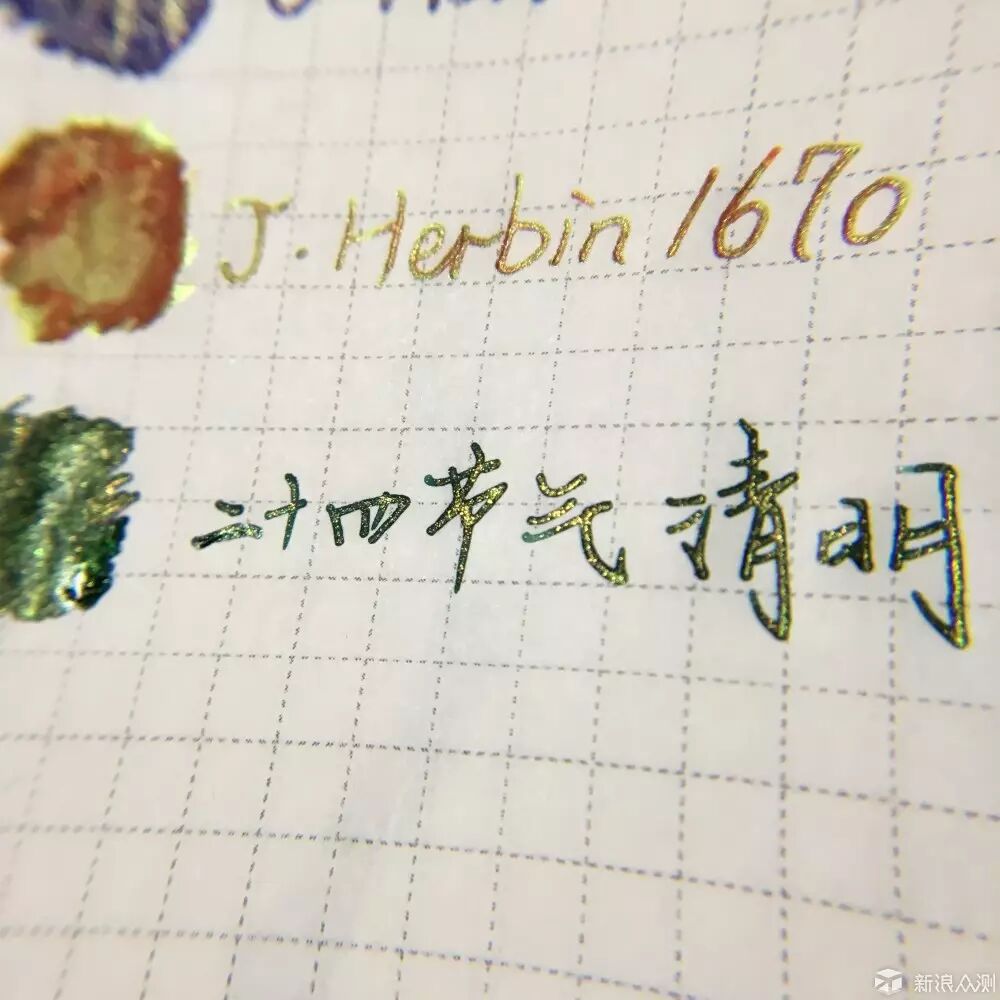 J. Herbin 1670
二十四节气 清明
新浪众测